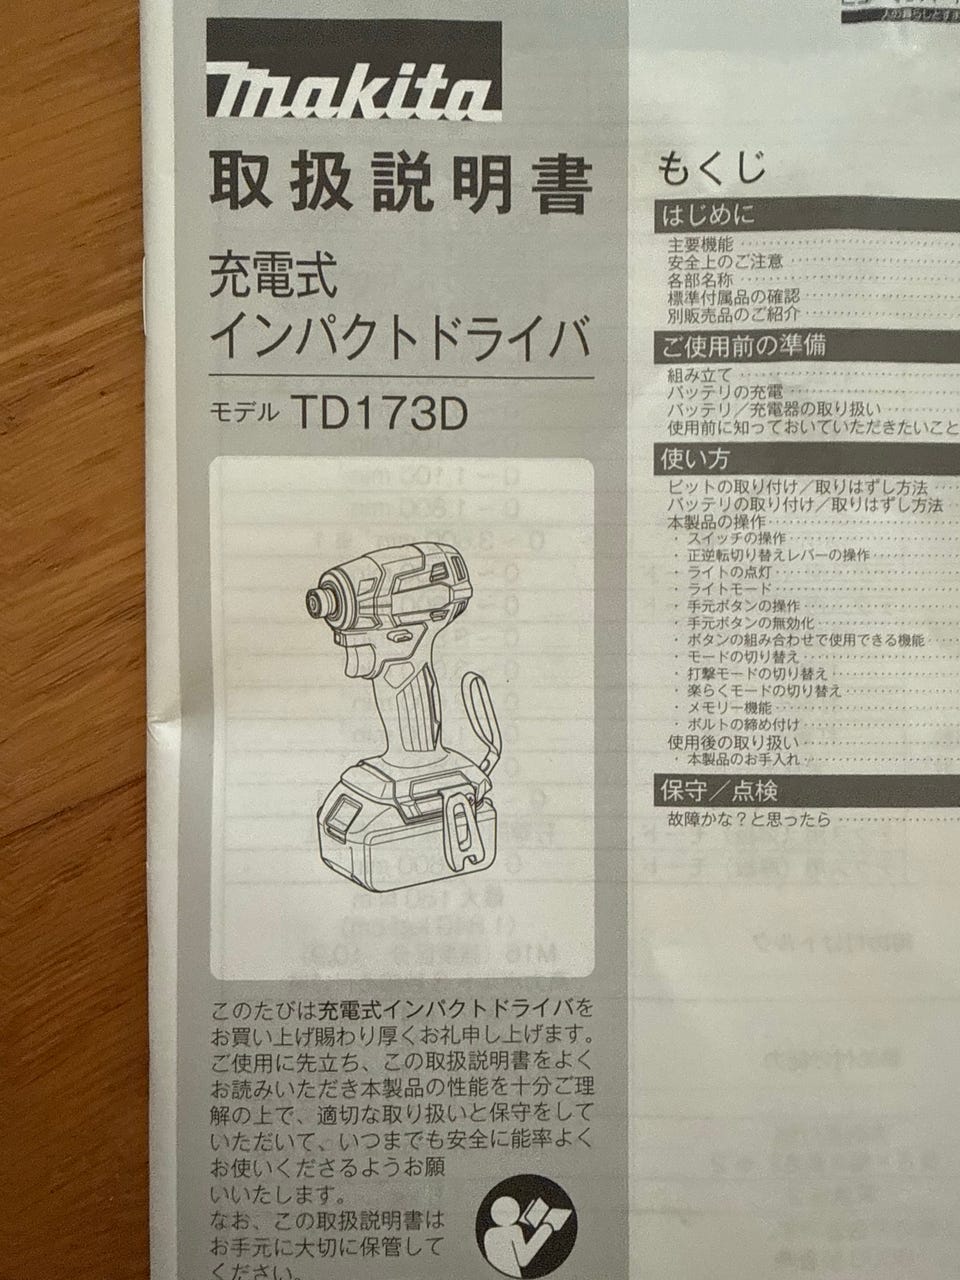 makita
取扱説明書
充電式
インパクトドライバ
モデル TD173D
このたびは充電式インパクトドライバを
お買い上げ賜わり厚くお礼申し上げます。
ご使用に先立ち、この取扱説明書をよく
お読みいただき本製品の性能を十分ご理
解の上で、適切な取り扱いと保守をして
いただいて、いつまでも安全に能率よく
お使いくださるようお願
いいたします。
なお、この取扱説明書は
お手元に大切に保管して
ください。
もくじ
はじめに
主要機能
安全上のご注意
各部名称
標準付属品の確認
別販売品のご紹介
ご使用前の準備
組み立て
バッテリの充電
バッテリ／充電器の取り扱い
使用前に知っておいていただきたいこと
使い方
ビットの取り付け／取りはずし方法
バッテリの取り付け／取りはずし方法
本製品の操作
・スイッチの操作
・正逆転切り替えレバーの操作
・ライトの点灯
・ライトモード
・手元ボタンの操作
・手元ボタンの無効化
・ボタンの組み合わせで使用できる機能
・モードの切り替え
・打撃モードの切り替え
・楽らくモードの切り替え
・メモリー機能
・ボルトの締め付け
使用後の取り扱い
・本製品のお手入れ
保守／点検
故障かな？と思ったら